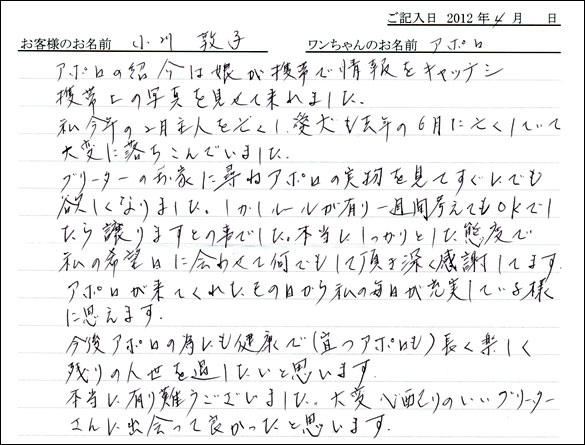 ご記入日 2012年 4月 日
お客様のお名前 小川 敦子 ワンちゃんのお名前 アポロ
アポロの紹介は娘が携帯で情報をキャッチし
携帯上の写真を見せて来れました、
私今年の2月主人を亡くし、愛犬も去年の6月に亡くしていて
大変に落ちこんでいました、
ブリーターのお家に尋ねアポロの実物を見てすぐにでも
欲しくなりました。しかしルールが有り一週間考えてもOKでし
たら譲りますとの事でした。本当にしっかりとした態度で
私の希望日に会わせて何でもして頂き深く感謝してます。
アポロが来てくれた、その日から私の毎日が充実している様
に思えます.
今後アポロの為にも健康で(且つアポロも)長く楽しく
残りの人世を過したいと思います.
本当に有り難うございました、大変心配りのいいブリーター
さんに出会って良かったと思います.